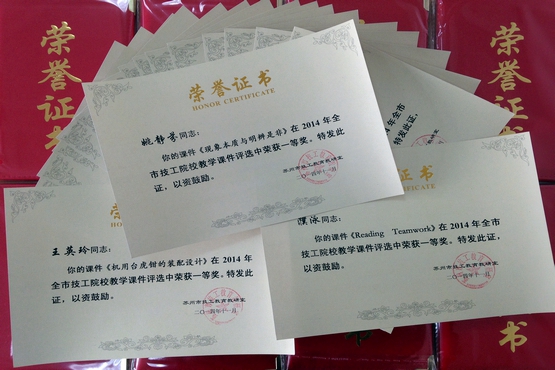 荣誉证书
荣誉证书
荣誉证书
HONOR CERTIFICATE
姚静芬同志：
你的课件《现象本质与明辨是非》在2014年全
市技工院校教学课件评选中荣获一等奖。特发此
证，以资鼓励。
苏州市技工教育教研室
二〇一四年十一月
王英玲同志：
你的课件《机用台虎钳的装配设计》在2014年
全市技工院校教学课件评选中荣获一等奖。特发
证，以资鼓励。
苏州市技工教育教研室
二〇一四年十一月
濮泳同志：
你的课件《Reading Teamwork》在2014年全市
技工院校教学课件评选中荣获一等奖。特发此证，
以资鼓励。
苏州市技工教育教研室
二〇一四年十一月
书